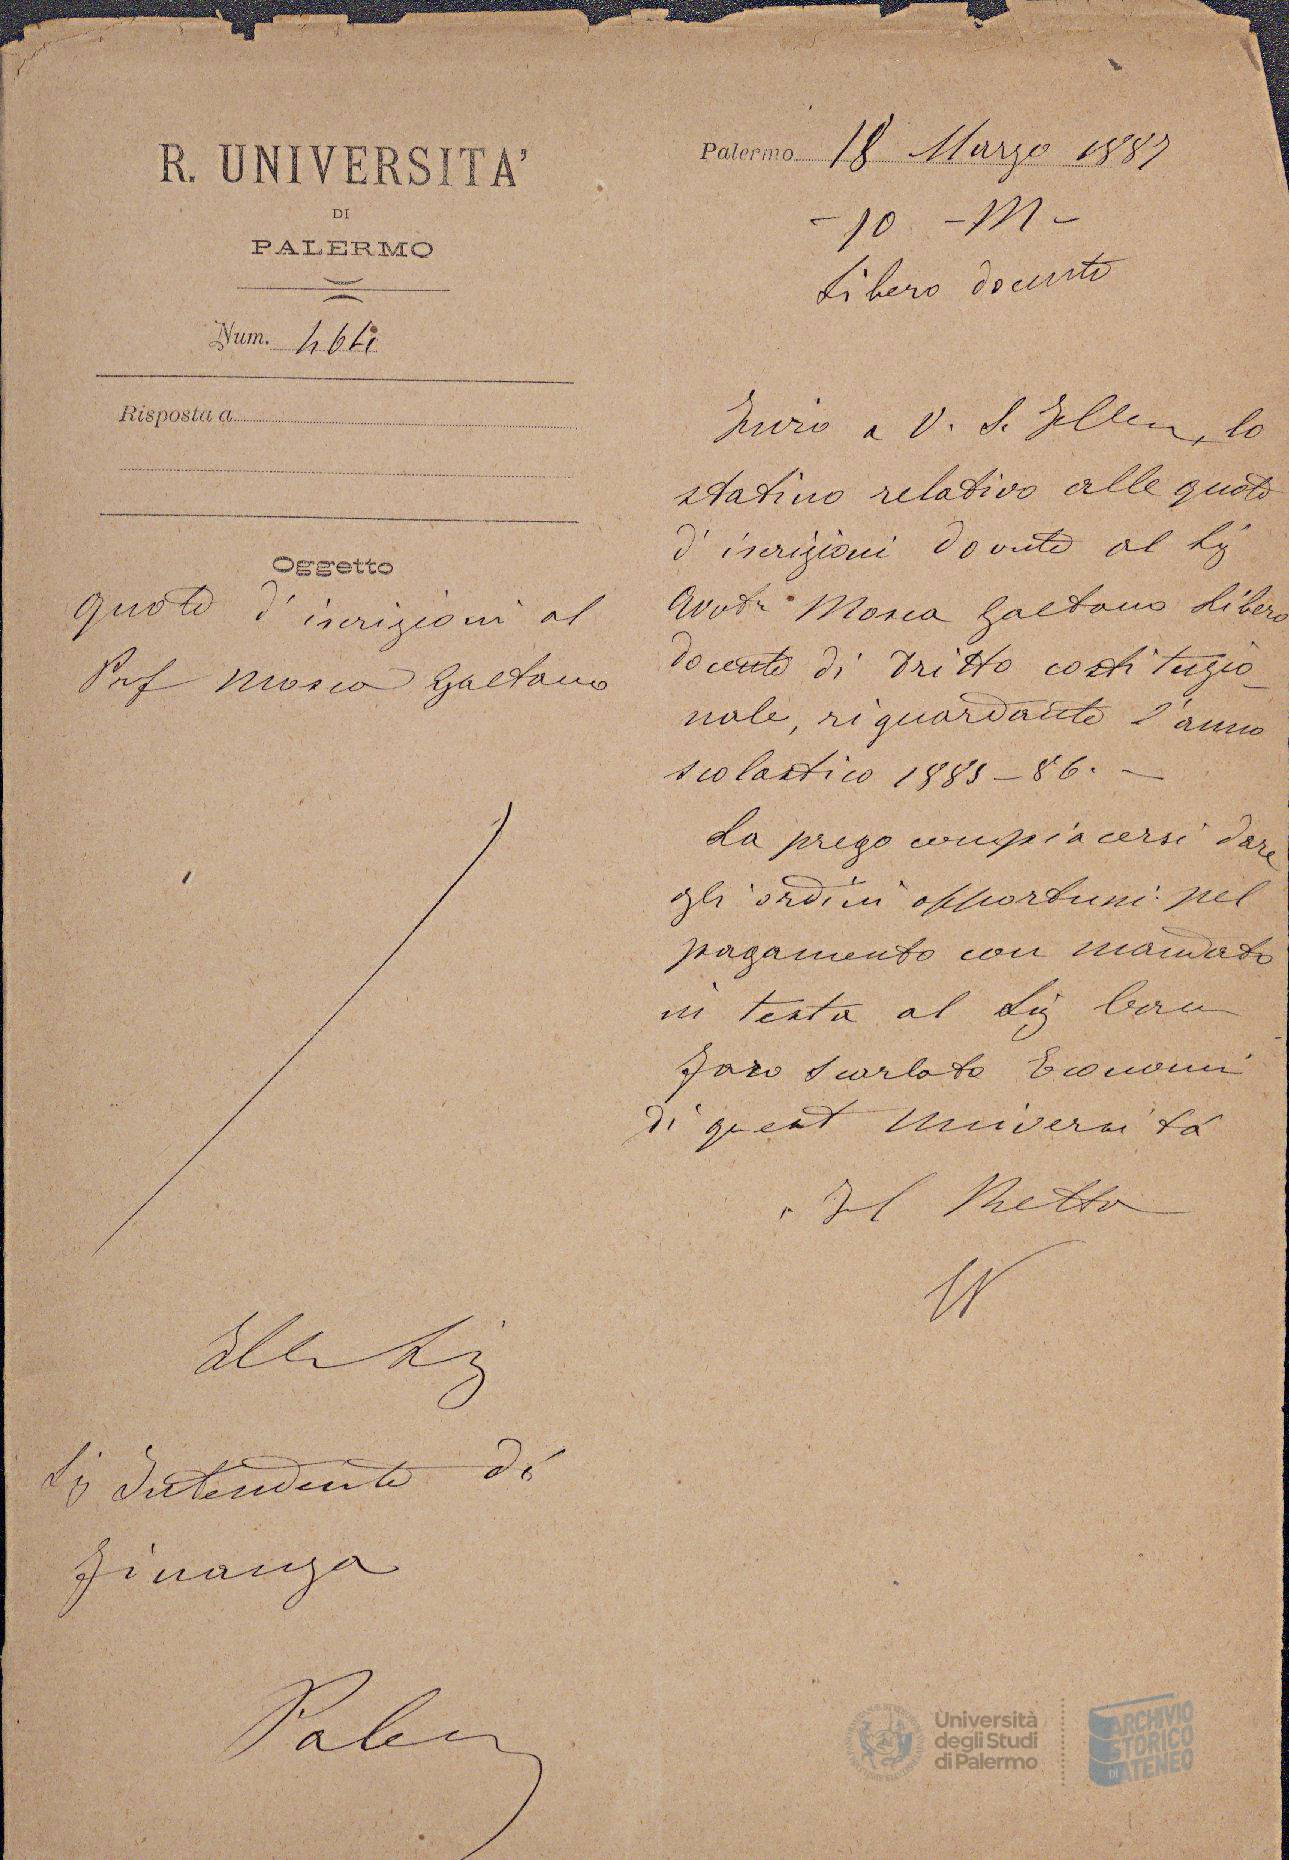 R. UNIVERSITA'
DI
PALERMO
Num. 464
Risposta a
Oggetto
quote d'iscrizioni al
Prof Mosca Gaetano
Ill Sig
Sig Intendente di
Finanza
Palermo
Palermo 18 Marzo 1887
- 10 - M -
Libero docente
Invio a V. S. Illm, lo
statino relativo alle quote
d'iscrizioni dovute al Sig
Mosca Gaetano Libero
docente di Dritto costituzio-
nale, riguardante l'anno
scolastico 1885-86. —
La prego compiacersi dare
gli ordini opportuni pel
pagamento con mandato
in testa al Sig
Scarlato Economo
di quest Università
Il Retto
Università
degli Studi
di Palermo
ARCHIVIO
STORICO
DI ATENEO